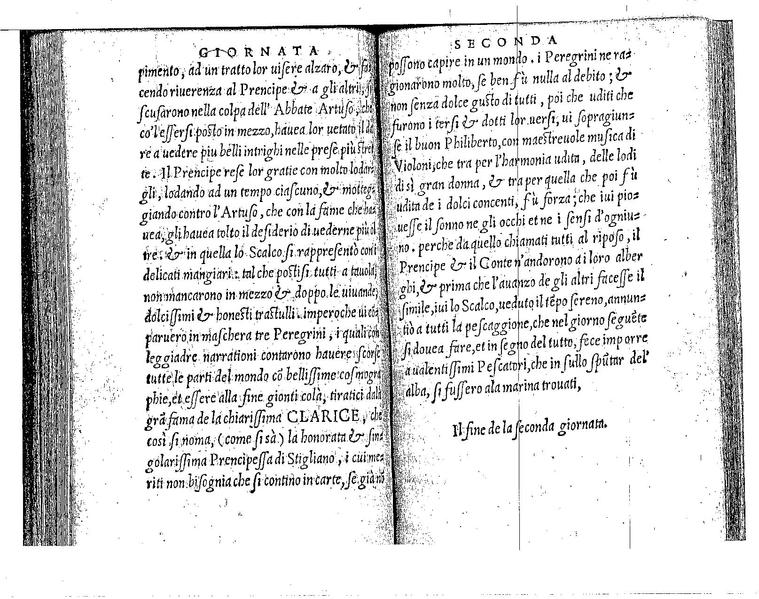 GIORNATA
pimento, ad un tratto lor uisere alzaro, &
cendo riuerenza al Prencipe & a gli altri,
scusarono nella colpa dell' Abbate Artuso, che
co'l'essersi posto in mezzo, hauea lor uetato il
re a uedere piu belli intrighi nelle prese piu
te. Il Prencipe rese lor gratie con molto lodar
gli, lodando ad un tempo ciascuno, & motteg
giando contro l'Artuso, che con la fame che
uea, gli hauea tolto il desiderio di uederne piu
tre: & in quella lo Scalco si rappresentò con
delicati mangiari: tal che postisi tutti a tauola,
non mancarono in mezzo & doppo le uiuande,
dolcissimi & honesti trastulli. imperoche
paruero in maschera tre Peregrini, i quali con
leggiadre narrationi contarono hauere scorse
tutte le parti del mondo cō bellissime cosmogra
phie, et essere alla fine gionti colà, tiratici dalla
grā fama de la chiarissima CLARICE, che
così si noma, (come si sà) la honorata & sin
golarissima Prencipessa di Stigliano, i cui me
riti non bisognia che si contino in carte, se già nō
SECONDA
possono capire in un mondo. i Peregrini ne ra=
gionarono molto, se ben fù nulla al debito; &
non senza dolce gusto di tutti, poi che uditi che
furono i tersi & dotti lor uersi, ui sopragiun=
se il buon Philiberto, con maestreuole musica di
Violoni, che tra per l'harmonia udita, delle lodi
di sì gran donna, & tra per quella che poi fù
udita de i dolci concenti, fù forza; che iui pio=
uesse il sonno ne gli occhi et ne i sensi d'ogniu=
no. perche da quello chiamati tutti al riposo, il
Prencipe & il Conte n'andorono a i loro alber
ghi, & prima che l'auanzo de gli altri facesse il
simile, iui lo Scalco, ueduto il tēpo sereno, annun=
tiò a tutti la pescaggione, che nel giorno seguēte
si douea fare, et in segno del tutto, fece imporre
a ualentissimi Pescatori, che in sullo spūtar del'
alba, si fussero ala marina trouati,
Il fine de la seconda giornata.